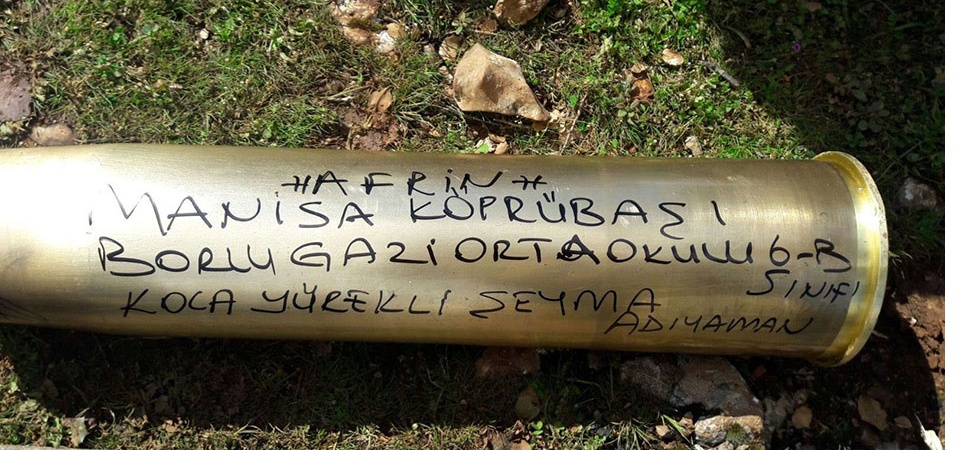 #AFRİN#
MANİSA KÖPRÜBAŞI
BORLU GAZİ ORTAOKULU 6-B
SINIFI
KOCA YÜREKLİ ŞEYMA
ADIYAMAN